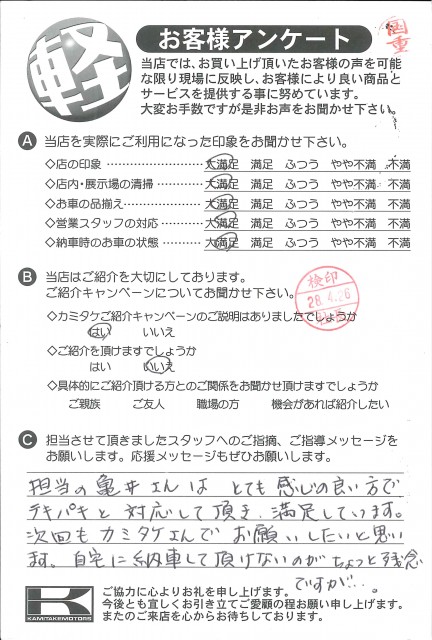 軽
お客様アンケート
当店では、お買い上げ頂いたお客様の声を可能
な限り現場に反映し、お客様により良い商品と
サービスを提供する事に努めています。
大変お手数ですが是非お声をお聞かせ下さい。
A 当店を実際にご利用になった印象をお聞かせ下さい。
◇店の印象 …………………… 大満足 満足 ふつう やや不満 不満
◇店内・展示場の清掃 ………… 大満足 満足 ふつう やや不満 不満
◇お車の品揃え………………… 大満足 満足 ふつう やや不満 不満
◇営業スタッフの対応 ………… 大満足 満足 ふつう やや不満 不満
◇納車時のお車の状態 ………… 大満足 満足 ふつう やや不満 不満
B 当店はご紹介を大切にしております。
ご紹介キャンペーンについてお聞かせ下さい。
検印
28.4.26
◇カミタケご紹介キャンペーンのご説明はありましたでしょうか
はい いいえ
◇ご紹介を頂けますでしょうか
はい いいえ
◇具体的にご紹介頂ける方とのご関係をお聞かせ頂けますでしょうか
ご親族 ご友人 職場の方 機会があれば紹介したい
C 担当させて頂きましたスタッフへのご指摘、ご指導メッセージを
お願いします。応援メッセージもぜひお願いします。
担当の亀井さんは とても感じの良い方で
テキパキと対応して頂き、満足しています。
次回もカミタケさんでお願いしたいと思い
ます。自宅に納車して頂けないのがちょっと残念
ですが…。
K
KAMITAKEMOTORS
ご協力に心よりお礼を申し上げます。
今後とも宜しくお引き立てご愛顧の程お願い申し上げます。
またのご来店を心からお待ちしております。